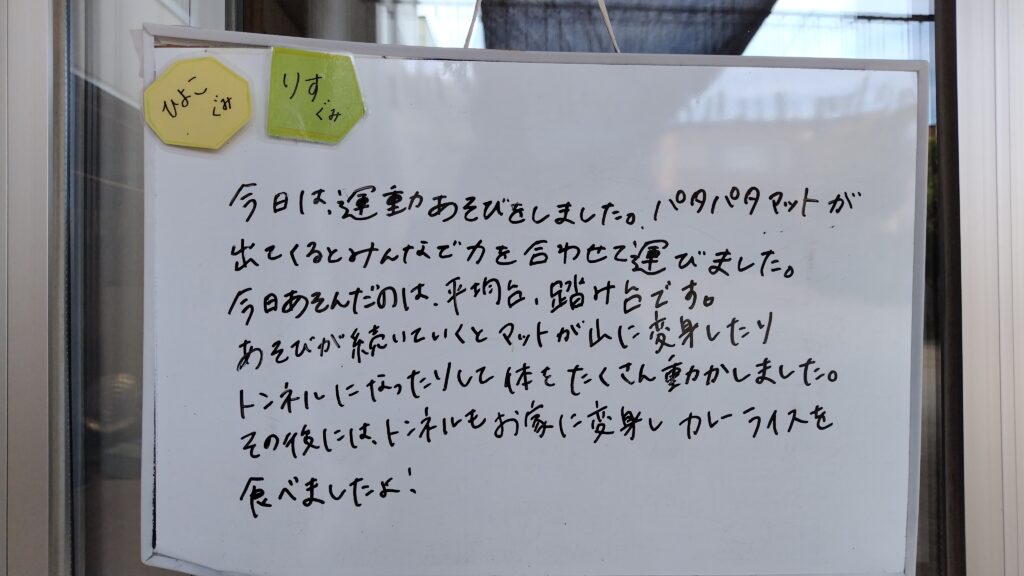 ひよこ ぐみ
りす ぐみ
今日は、運動あそびをしました。パタパタマットが
出てくるとみんなで力を合わせて運びました。
今日あそんだのは、平均台、踏け台です。
あそびが続いていくとマットが山に変身したり
トンネルになったりして体をたくさん動かしました。
その後には、トンネルもお家に変身しカレーライスを
食べましたよ!